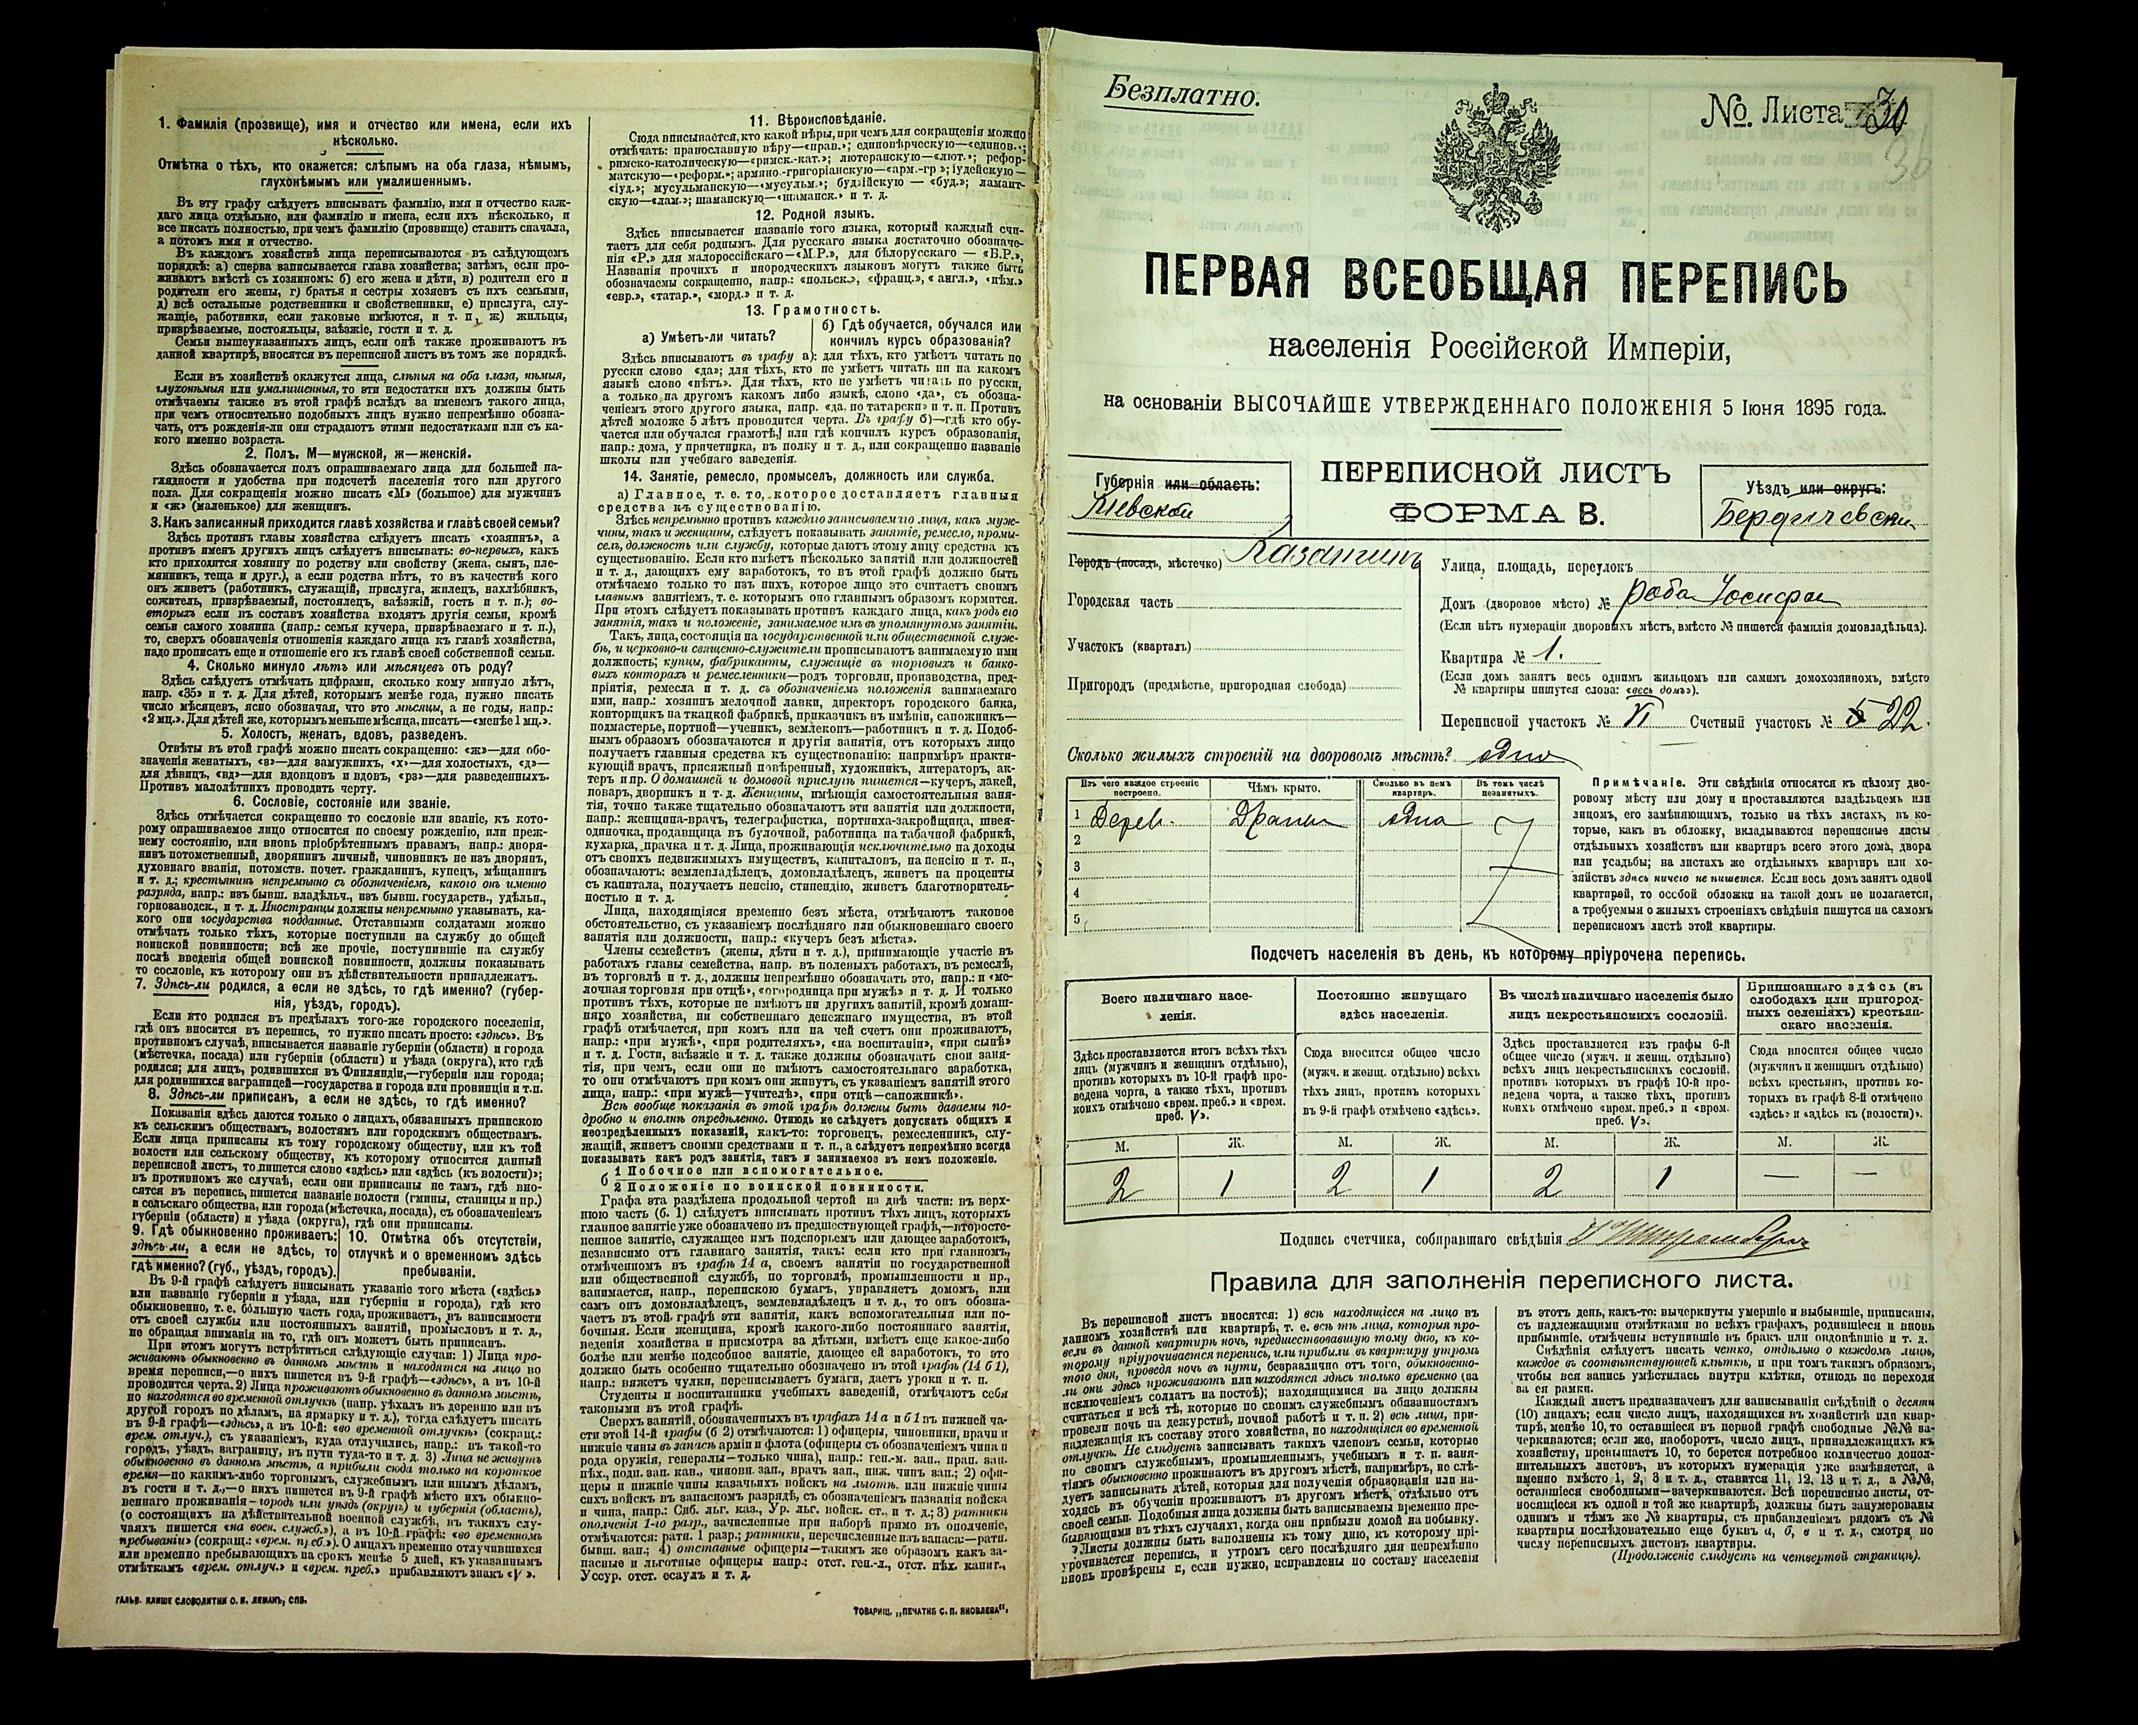 1. Фамилія (прозвище), имя и отчество или имена, если ихъ
нѣсколько.
Отмѣтка о тѣхъ, кто окажется: слѣпымъ на оба глаза, нѣмымъ,
глухонѣмымъ или умалишеннымъ.
Въ эту графу слѣдуетъ вписывать фамилію, имя и отчество каж-
даго лица отдѣльно, или фамилію и имена, если ихъ нѣсколько, и
все писать полностью, при чемъ фамилію (прозвище) ставить сначала,
а потомъ имя и отчество.
Въ каждомъ хозяйствѣ лица переписываются въ слѣдующемъ
порядкѣ: а) сперва записывается глава хозяйства; затѣмъ, если про-
живаютъ вмѣстѣ съ хозяиномъ: б) его жена и дѣти, в) родители его и
родители его жены, г) братья и сестры хозяевъ съ ихъ семьями,
д) всѣ остальные родственники и свойственники, е) прислуга, слу-
жащіе, работники, если таковые имѣются, и т. п., ж) жильцы,
призрѣваемые, постояльцы, заѣзжіе, гости и т. д.
Семьи вышеуказанныхъ лицъ, если онѣ также проживаютъ въ
данной квартирѣ, вносятся въ переписной листъ въ томъ же порядкѣ.
Если въ хозяйствѣ окажутся лица, слѣпыя на оба глаза, нѣмыя,
глухонѣмыя или умалишенныя, то эти недостатки ихъ должны быть
отмѣчаемы также въ этой графѣ вслѣдъ за именемъ такого лица,
при чемъ относительно подобныхъ лицъ нужно непремѣнно обозна-
чать, отъ рожденія-ли они страдаютъ этими недостатками или съ ка-
кого именно возраста.
2. Полъ. М—мужской, ж—женскій.
Здѣсь обозначается полъ опрашиваемаго лица для большей на-
глядности и удобства при подсчетѣ населенія того или другого
пола. Для сокращенія можно писать «М» (большое) для мужчинъ
и «ж» (маленькое) для женщинъ.
3. Какъ записанный приходится главѣ хозяйства и главѣ своей семьи?
Здѣсь противъ главы хозяйства слѣдуетъ писать «хозяинъ», а
противъ именъ другихъ лицъ слѣдуетъ вписывать: во-первыхъ, какъ
кто приходится хозяину по родству или свойству (жена, сынъ, пле-
мянникъ, теща и друг.), а если родства нѣтъ, то въ качествѣ кого
онъ живетъ (работникъ, служащій, прислуга, жилецъ, нахлѣбникъ,
сожитель, призрѣваемый, постоялецъ, заѣзжій, гость и т. п.); во-
вторыхъ если въ составъ хозяйства входятъ другія семьи, кромѣ
семьи самого хозяина (напр.: семья кучера, призрѣваемаго и т. п.),
то, сверхъ обозначенія отношенія каждаго лица къ главѣ хозяйства,
надо прописать еще и отношеніе его къ главѣ своей собственной семьи.
4. Сколько минуло лѣтъ или мѣсяцевъ отъ роду?
Здѣсь слѣдуетъ отмѣчать цифрами, сколько кому минуло лѣтъ,
напр. «35» и т. д. Для дѣтей, которымъ менѣе года, нужно писать
число мѣсяцевъ, ясно обозначая, что это мѣсяцы, а не годы, напр.:
«2 мц.». Для дѣтей же, которымъ меньше мѣсяца, писать—«менѣе 1 мц.».
5. Холостъ, женатъ, вдовъ, разведенъ.
Отвѣты въ этой графѣ можно писать сокращенно: «ж»—для обо-
значенія женатыхъ, «з»—для замужнихъ, «х»—для холостыхъ, «д»—
для дѣвицъ, «вд»—для вдовцовъ и вдовъ, «рз»—для разведенныхъ.
Противъ малолѣтнихъ проводить черту.
6. Сословіе, состояніе или званіе.
Здѣсь отмѣчается сокращенно то сословіе или званіе, къ кото-
рому опрашиваемое лицо относится по своему рожденію, или преж-
нему состоянію, или вновь пріобрѣтеннымъ правамъ, напр.: дворя-
нинъ потомственный, дворянинъ личный, чиновникъ не изъ дворянъ,
духовнаго званія, потомств. почет. гражданинъ, купецъ, мѣщанинъ
и т. д.; крестьянинъ непремѣнно съ обозначеніемъ, какого онъ именно
разряда, напр.: изъ бывш. владѣльч., изъ бывш. государств., удѣльн.,
горнозаводск., и т. д. Иностранцы должны непремѣнно указывать, ка-
кого они государства подданные. Отставными солдатами можно
отмѣчать только тѣхъ, которые поступили на службу до общей
воинской повинности; всѣ же прочіе, поступившіе на службу
послѣ введенія общей воинской повинности, должны показывать
то сословіе, къ которому они въ дѣйствительности принадлежатъ.
7. Здѣсь-ли родился, а если не здѣсь, то гдѣ именно? (губер-
нія, уѣздъ, городъ).
Если кто родился въ предѣлахъ того-же городского поселенія,
гдѣ онъ вносится въ перепись, то нужно писать просто: «здѣсь». Въ
противномъ случаѣ, вписывается названіе губерніи (области) и города
(мѣстечка, посада) или губерніи (области) и уѣзда (округа), кто гдѣ
родился; для лицъ, родившихся въ Финляндіи,—губерніи или города;
для родившихся заграницей—государства и города или провинціи и т.п.
8. Здѣсь-ли приписанъ, а если не здѣсь, то гдѣ именно?
Показанія здѣсь даются только о лицахъ, обязанныхъ припискою
къ сельскимъ обществамъ, волостямъ или городскимъ обществамъ.
Если лица приписаны къ тому городскому обществу, или къ той
волости или сельскому обществу, къ которому относится данный
переписной листъ, то пишется слово «здѣсь» или «здѣсь (къ волости)»;
въ противномъ же случаѣ, если они приписаны не тамъ, гдѣ вно-
сятся въ перепись, пишется названіе волости (гмины, станицы и пр.)
и сельскаго общества, или города (мѣстечка, посада), съ обозначеніемъ
губерніи (области) и уѣзда (округа), гдѣ они приписаны.
9. Гдѣ обыкновенно проживаетъ:
здѣсь-ли, а если не здѣсь, то
гдѣ именно? (губ., уѣздъ, городъ).
10. Отмѣтка объ отсутствіи,
отлучкѣ и о временномъ здѣсь
пребываніи.
Въ 9-й графѣ слѣдуетъ вписывать указаніе того мѣста («здѣсь»
или названіе губерніи и уѣзда, или губерніи и города), гдѣ кто
обыкновенно, т. е. большую часть года, проживаетъ, въ зависимости
отъ своей службы или постоянныхъ занятій, промысловъ и т. д.,
не обращая вниманія на то, гдѣ онъ можетъ быть приписанъ.
При этомъ могутъ встрѣтиться слѣдующіе случаи: 1) Лица про-
живаютъ обыкновенно въ данномъ мѣстѣ и находятся на лицо во
время переписи,—о нихъ пишется въ 9-й графѣ—«здѣсь», а въ 10-й
проводится черта. 2) Лица проживаютъ обыкновенно въ данномъ мѣстѣ,
но находятся во временной отлучкѣ (напр. уѣхалъ въ деревню или въ
другой городъ по дѣламъ, на ярмарку и т. д.), тогда слѣдуетъ писать
въ 9-й графѣ—«здѣсь», а въ 10-й: «во временной отлучкѣ» (сокращ.:
врем. отлуч.), съ указаніемъ, куда отлучились, напр.: въ такой-то
городъ, уѣздъ, заграницу, въ пути туда-то и т. д. 3) Лица не живутъ
обыкновенно въ данномъ мѣстѣ, а прибыли сюда только на короткое
время—по какимъ-либо торговымъ, служебнымъ или инымъ дѣламъ,
въ гости и т. д.,—о нихъ пишется въ 9-й графѣ мѣсто ихъ обыкно-
веннаго проживанія—городъ или уѣздъ (округъ) и губернія (область),
(о состоящихъ на дѣйствительной военной службѣ, въ такихъ слу-
чаяхъ пишется «на воен. службѣ»), а въ 10-й графѣ: «во временномъ
пребываніи» (сокращ.: «врем. преб.»). О лицахъ временно отлучившихся
или временно пребывающихъ на срокъ менѣе 5 дней, къ указаннымъ
отмѣткамъ «врем. отлуч.» и «врем. преб.» прибавляютъ знакъ «V».
ГАЛЬВ. КЛИШЕ СЛОВОЛИТНИ О. И. ЛЕМАНЪ, СПБ.
11. Вѣроисповѣданіе.
Сюда вписывается, кто какой вѣры, при чемъ для сокращенія можно
отмѣчать: православную вѣру—«прав.»; единовѣрческую—«единов.»;
римско-католическую—«римск.-кат.»; лютеранскую—«лют.»; рефор-
матскую—«реформ.»; армяно-григоріанскую—«арм.-гр»; іудейскую—
«іуд.»; мусульманскую—«мусульм.»; буддійскую—«буд.»; ламаит-
скую—«лам.»; шаманскую—«шаманск.» и т. д.
12. Родной языкъ.
Здѣсь вписывается названіе того языка, который каждый счи-
таетъ для себя роднымъ. Для русскаго языка достаточно обозначе-
нія «Р.» для малороссійскаго—«М.Р.», для бѣлорусскаго — «Б.Р.»,
Названія прочихъ и инородческихъ языковъ могутъ также быть
обозначаемы сокращенно, напр.: «польск.», «франц.», «англ.», «нѣм.»
«евр.», «татар.», «морд.» и т. д.
13. Грамотность.
а) Умѣетъ-ли читать?
б) Гдѣ обучается, обучался или
кончилъ курсъ образованія?
Здѣсь вписываютъ въ графу а): для тѣхъ, кто умѣетъ читать по
русски слово «да»; для тѣхъ, кто не умѣетъ читать ни на какомъ
языкѣ слово «нѣтъ». Для тѣхъ, кто не умѣетъ читать по русски,
а только на другомъ какомъ либо языкѣ, слово «да», съ обозна-
ченіемъ этого другого языка, напр. «да, по татарски» и т. п. Противъ
дѣтей моложе 5 лѣтъ проводится черта. Въ графу б)—гдѣ кто обу-
чается или обучался грамотѣ, или гдѣ кончилъ курсъ образованія,
напр.: дома, у причетника, въ полку и т. д., или сокращенно названіе
школы или учебнаго заведенія.
14. Занятіе, ремесло, промыселъ, должность или служба.
а) Главное, т. е. то, которое доставляетъ главныя
средства къ существованію.
Здѣсь непремѣнно противъ каждаго записываемаго лица, какъ муж-
чины, такъ и женщины, слѣдуетъ показывать занятіе, ремесло, промы-
селъ, должность или службу, которые даютъ этому лицу средства къ
существованію. Если кто имѣетъ нѣсколько занятій или должностей
и т. д., дающихъ ему заработокъ, то въ этой графѣ должно быть
отмѣчаемо только то изъ нихъ, которое лицо это считаетъ своимъ
главнымъ занятіемъ, т. е. которымъ оно главнымъ образомъ кормится.
При этомъ слѣдуетъ показывать противъ каждаго лица, какъ родъ его
занятія, такъ и положеніе, занимаемое имъ въ упомянутомъ занятіи.
Такъ, лица, состоящія на государственной или общественной служ-
бѣ, и церковно-и священно-служители прописываютъ занимаемую ими
должность; купцы, фабриканты, служащіе въ торговыхъ и банко-
выхъ конторахъ и ремесленники—родъ торговли, производства, пред-
пріятія, ремесла и т. д. съ обозначеніемъ положенія занимаемаго
ими, напр.: хозяинъ мелочной лавки, директоръ городского банка,
конторщикъ на ткацкой фабрикѣ, приказчикъ въ имѣніи, сапожникъ—
подмастерье, портной—ученикъ, землекопъ—работникъ и т. д. Подоб-
нымъ образомъ обозначаются и другія занятія, отъ которыхъ лицо
получаетъ главныя средства къ существованію: напримѣръ практи-
кующій врачъ, присяжный повѣренный, художникъ, литераторъ, ак-
теръ и пр. О домашней и домовой прислугѣ пишется—кучеръ, лакей,
поваръ, дворникъ и т. д. Женщины, имѣющія самостоятельныя заня-
тія, точно также тщательно обозначаютъ эти занятія или должности,
напр.: женщина-врачъ, телеграфистка, портниха-закройщица, швея-
одиночка, продавщица въ булочной, работница на табачной фабрикѣ,
кухарка, прачка и т. д. Лица, проживающія исключительно на доходы
отъ своихъ недвижимыхъ имуществъ, капиталовъ, на пенсію и т. п.,
обозначаютъ: землевладѣлецъ, домовладѣлецъ, живетъ на проценты
съ капитала, получаетъ пенсію, стипендію, живетъ благотворитель-
ностью и т. д.
Лица, находящіяся временно безъ мѣста, отмѣчаютъ таковое
обстоятельство, съ указаніемъ послѣдняго или обыкновеннаго своего
занятія или должности, напр.: «кучеръ безъ мѣста».
Члены семействъ (жены, дѣти и т. д.), принимающіе участіе въ
работахъ главы семейства, напр. въ полевыхъ работахъ, въ ремеслѣ,
въ торговлѣ и т. д., должны непремѣнно обозначать это, напр.: и «ме-
лочная торговля при отцѣ», «огородница при мужѣ» и т. д. И только
противъ тѣхъ, которые не имѣютъ ни другихъ занятій, кромѣ домаш-
няго хозяйства, ни собственнаго денежнаго имущества, въ этой
графѣ отмѣчается, при комъ или на чей счетъ они проживаютъ,
напр.: «при мужѣ», «при родителяхъ», «на воспитаніи», «при сынѣ»
и т. д. Гости, заѣзжіе и т. д. также должны обозначать свои заня-
тія, при чемъ, если они не имѣютъ самостоятельнаго заработка,
то они отмѣчаютъ при комъ они живутъ, съ указаніемъ занятій этого
лица, напр.: «при мужѣ—учителѣ», «при отцѣ—сапожникѣ».
Всѣ вообще показанія въ этой графѣ должны быть даваемы по-
дробно и вполнѣ опредѣленно. Отнюдь не слѣдуетъ допускать общихъ и
неопредѣленныхъ показаній, какъ-то: торговецъ, ремесленникъ, слу-
жащій, живетъ своими средствами и т. п., а слѣдуетъ непремѣнно всегда
показывать какъ родъ занятія, такъ и занимаемое въ немъ положеніе.
1 Побочное или вспомогательное.
б
2 Положеніе по воинской повинности.
Графа эта раздѣлена продольной чертой на двѣ части: въ верх-
нюю часть (б. 1) слѣдуетъ вписывать противъ тѣхъ лицъ, которыхъ
главное занятіе уже обозначено въ предшествующей графѣ,—второсте-
пенное занятіе, служащее имъ подспорьемъ или дающее заработокъ,
независимо отъ главнаго занятія, такъ: если кто при главномъ,
отмѣченномъ въ графѣ 14 а, своемъ занятіи по государственной
или общественной службѣ, по торговлѣ, промышленности и пр.,
занимается, напр., перепискою бумагъ, управляетъ домомъ, или
самъ онъ домовладѣлецъ, землевладѣлецъ и т. д., то онъ обозна-
чаетъ въ этой графѣ эти занятія, какъ вспомогательныя или по-
бочныя. Если женщина, кромѣ какого-либо постояннаго занятія,
веденія хозяйства и присмотра за дѣтьми, имѣетъ еще какое-либо
болѣе или менѣе подсобное занятіе, дающее ей заработокъ, то это
должно быть особенно тщательно обозначено въ этой графѣ (14 б 1),
напр.: вяжетъ чулки, переписываетъ бумаги, даетъ уроки и т. п.
Студенты и воспитанники учебныхъ заведеній, отмѣчаютъ себя
таковыми въ этой графѣ.
Сверхъ занятій, обозначенныхъ въ графахъ 14 а и б 1 въ нижней ча-
сти этой 14-й графы (б 2) отмѣчаются: 1) офицеры, чиновники, врачи и
нижніе чины въ запасѣ арміи и флота (офицеры съ обозначеніемъ чина и
рода оружія, генералы—только чина), напр.: ген.-м. зап., прап. зап.
пѣх., подп. зап. кав., чиновн. зап., врачъ зап., ниж. чинъ зап.; 2) офи-
церы и нижніе чины казачьихъ войскъ на льготѣ, или нижніе чины
сихъ войскъ въ запасномъ разрядѣ, съ обозначеніемъ названія войска
и чина, напр.: Сиб. льг. каз., Ур. льг. войск. ст., и т. д.; 3) ратники
ополченія 1-го разр., зачисленные при наборѣ прямо въ ополченіе,
отмѣчаются: ратн. 1 разр.; ратники, перечисленные изъ запаса:—ратн.
бывш. зап.; 4) отставные офицеры—такимъ же образомъ какъ за-
пасные и льготные офицеры напр.: отст. ген.-л., отст. пѣх. капит.,
Уссур. отст. есаулъ и т. д.
ТОВАРИЩ. „ПЕЧАТНЯ С. П. ЯКОВЛЕВА“.
Безплатно.
№. Листа 30
36
ПЕРВАЯ ВСЕОБЩАЯ ПЕРЕПИСЬ
населенія Россійской Имперіи,
на основаніи ВЫСОЧАЙШЕ УТВЕРЖДЕННАГО ПОЛОЖЕНІЯ 5 Іюня 1895 года.
Губернія или область:
Кіевской
ПЕРЕПИСНОЙ ЛИСТЪ
ФОРМА В.
Уѣздъ или округъ:
Бердичевскій
Городъ (посадъ, мѣстечко) Казатинъ
Городская часть
Участокъ (кварталъ)
Пригородъ (предмѣстье, пригородная слобода)
Улица, площадь, переулокъ
Домъ (дворовое мѣсто) №
(Если нѣтъ нумераціи дворовыхъ мѣстъ, вмѣсто № пишется фамилія домовладѣльца).
Квартира № 1.
(Если домъ занятъ весь однимъ жильцомъ или самимъ домохозяиномъ, вмѣсто
№ квартиры пишутся слова: «весь домъ»).
Переписной участокъ № VI Счетный участокъ № 22.
Сколько жилыхъ строеній на дворовомъ мѣстѣ? одно
Изъ чего каждое строеніе построено.
Чѣмъ крыто.
Сколько въ немъ квартиръ.
Въ томъ числѣ незанятыхъ.
1 Дерев. Дранью одна
2
3
4
5
Примѣчаніе. Эти свѣдѣнія относятся къ цѣлому дво-
ровому мѣсту или дому и проставляются владѣльцемъ или
лицомъ, его замѣняющимъ, только на тѣхъ листахъ, въ ко-
торые, какъ въ обложку, вкладываются переписные листы
отдѣльныхъ хозяйствъ или квартиръ всего этого дома, двора
или усадьбы; на листахъ же отдѣльныхъ квартиръ или хо-
зяйствъ здѣсь ничего не пишется. Если весь домъ занятъ одной
квартирой, то особой обложки на такой домъ не полагается,
а требуемыя о жилыхъ строеніяхъ свѣдѣнія пишутся на самомъ
переписномъ листѣ этой квартиры.
Подсчетъ населенія въ день, къ которому пріурочена перепись.
Всего наличнаго насе-
ленія.
Постоянно живущаго
здѣсь населенія.
Въ числѣ наличнаго населенія было
лицъ некрестьянскихъ сословій.
Приписаннаго здѣсь (въ
слободахъ или пригород-
ныхъ селеніяхъ) крестьян-
скаго населенія.
Здѣсь проставляется итогъ всѣхъ тѣхъ
лицъ (мужчинъ и женщинъ отдѣльно),
противъ которыхъ въ 10-й графѣ про-
ведена черта, а также тѣхъ, противъ
коихъ отмѣчено «врем. преб.» и «врем.
преб. V».
Сюда вносится общее число
(мужч. и женщ. отдѣльно) всѣхъ
тѣхъ лицъ, противъ которыхъ
въ 9-й графѣ отмѣчено «здѣсь».
Здѣсь проставляется изъ графы 6-й
общее число (мужч. и женщ. отдѣльно)
всѣхъ лицъ некрестьянскихъ сословій.
противъ которыхъ въ графѣ 10-й про-
ведена черта, а также тѣхъ, противъ
коихъ отмѣчено «врем. преб.» и «врем.
преб. V».
Сюда вносится общее число
(мужчинъ и женщинъ отдѣльно)
всѣхъ крестьянъ, противъ ко-
торыхъ въ графѣ 8-й отмѣчено
«здѣсь» и «здѣсь къ (волости)».
М. Ж. М. Ж. М. Ж. М. Ж.
2 1 2 1 2 1 — —
Подпись счетчика, собиравшаго свѣдѣнія
Правила для заполненія переписного листа.
Въ переписной листъ вносятся: 1) всѣ находящіеся на лицо въ
данномъ хозяйствѣ или квартирѣ, т. е. всѣ тѣ лица, которыя про-
вели въ данной квартирѣ ночь, предшествовавшую тому дню, къ ко-
торому пріурочивается перепись, или прибыли въ квартиру утромъ
того дня, проведя ночь въ пути, безразлично отъ того, обыкновенно-
ли они здѣсь проживаютъ или находятся здѣсь только временно (за
исключеніемъ солдатъ на постоѣ); находящимися на лицо должны
считаться и всѣ тѣ, которые по своимъ служебнымъ обязанностямъ
провели ночь на дежурствѣ, ночной работѣ и т. п. 2) всѣ лица, при-
надлежащія къ составу этого хозяйства, но находящіяся во временной
отлучкѣ. Не слѣдуетъ записывать такихъ членовъ семьи, которые
по своимъ служебнымъ, промышленнымъ, учебнымъ и т. п. заня-
тіямъ обыкновенно проживаютъ въ другомъ мѣстѣ, напримѣръ, не слѣ-
дуетъ записывать дѣтей, которыя для полученія образованія или на-
ходясь въ обученіи проживаютъ въ другомъ мѣстѣ, отдѣльно отъ
своей семьи. Подобныя лица должны быть записываемы временно пре-
бывающими въ тѣхъ случаяхъ, когда они прибыли домой на побывку.
Листы должны быть заполнены къ тому дню, къ которому прі-
урочивается перепись, и утромъ сего послѣдняго дня непремѣнно
вновь провѣрены и, если нужно, исправлены по составу населенія
въ этотъ день, какъ-то: вычеркнуты умершіе и выбывшіе, приписаны,
съ надлежащими отмѣтками во всѣхъ графахъ, родившіеся и вновь
прибывшіе, отмѣчены вступившіе въ бракъ или овдовѣвшіе и т. д.
Свѣдѣнія слѣдуетъ писать четко, отдѣльно о каждомъ лицѣ,
каждое въ соотвѣтствующей клѣткѣ, и при томъ такимъ образомъ,
чтобы вся запись умѣстилась внутри клѣтки, отнюдь не переходя
за ея рамки.
Каждый листъ предназначенъ для записыванія свѣдѣній о десяти
(10) лицахъ; если число лицъ, находящихся въ хозяйствѣ или квар-
тирѣ, менѣе 10, то оставшіеся въ первой графѣ свободные №№ за-
черкиваются; если же, наоборотъ, число лицъ, принадлежащихъ къ
хозяйству, превышаетъ 10, то берется потребное количество допол-
нительныхъ листовъ, въ которыхъ нумерація уже измѣняется, а
именно вмѣсто 1, 2, 3 и т. д., ставится 11, 12, 13 и т. д., а №№,
оставшіеся свободными—зачеркиваются. Всѣ переписные листы, от-
носящіеся къ одной и той же квартирѣ, должны быть занумерованы
однимъ и тѣмъ же № квартиры, съ прибавленіемъ рядомъ съ №
квартиры послѣдовательно еще буквъ а, б, в и т. д., смотря по
числу переписныхъ листовъ квартиры.
(Продолженіе слѣдуетъ на четвертой страницѣ).